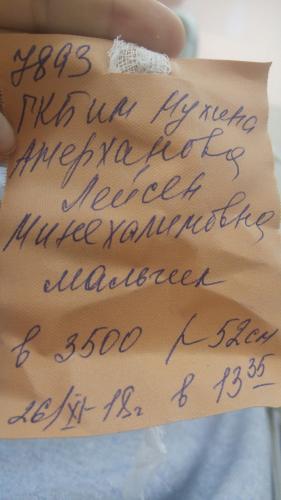 7893
ГКБ им Мухина
Амерханова
Лейсен
Минехалимовна
мальчик
в 3500 р-52см
26/XI-18г в 13 35